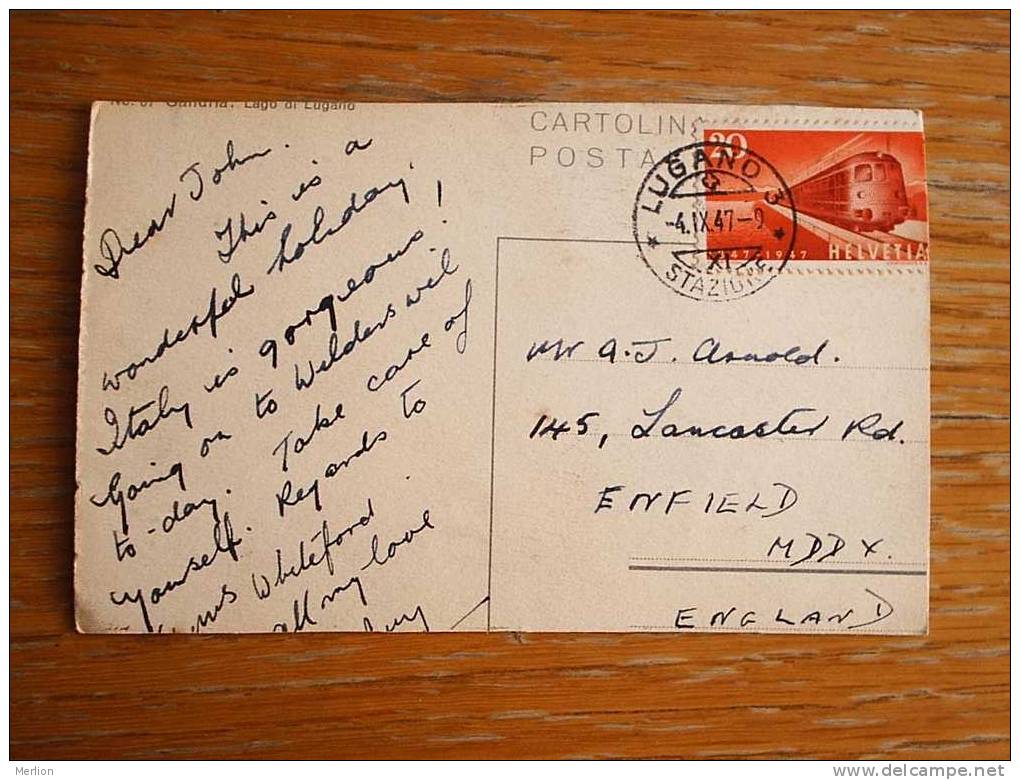 No. 87 Gandria. Lago di Lugano
CARTOLIN
POSTA
20
HELVETIA
1947
LUGANO 3
-4.IX.47-9
STAZIONE
Dear John.
This is a
wonderful holiday.
Italy is gorgeous!
Going on to Wilderswil
to-day. Take care of
yourself. Regards to
Whiteford.
all my love
Mr A.J. Arnold.
145, Lancaster Rd.
ENFIELD
MDDX.
ENGLAND
Merlion
delcampe.net